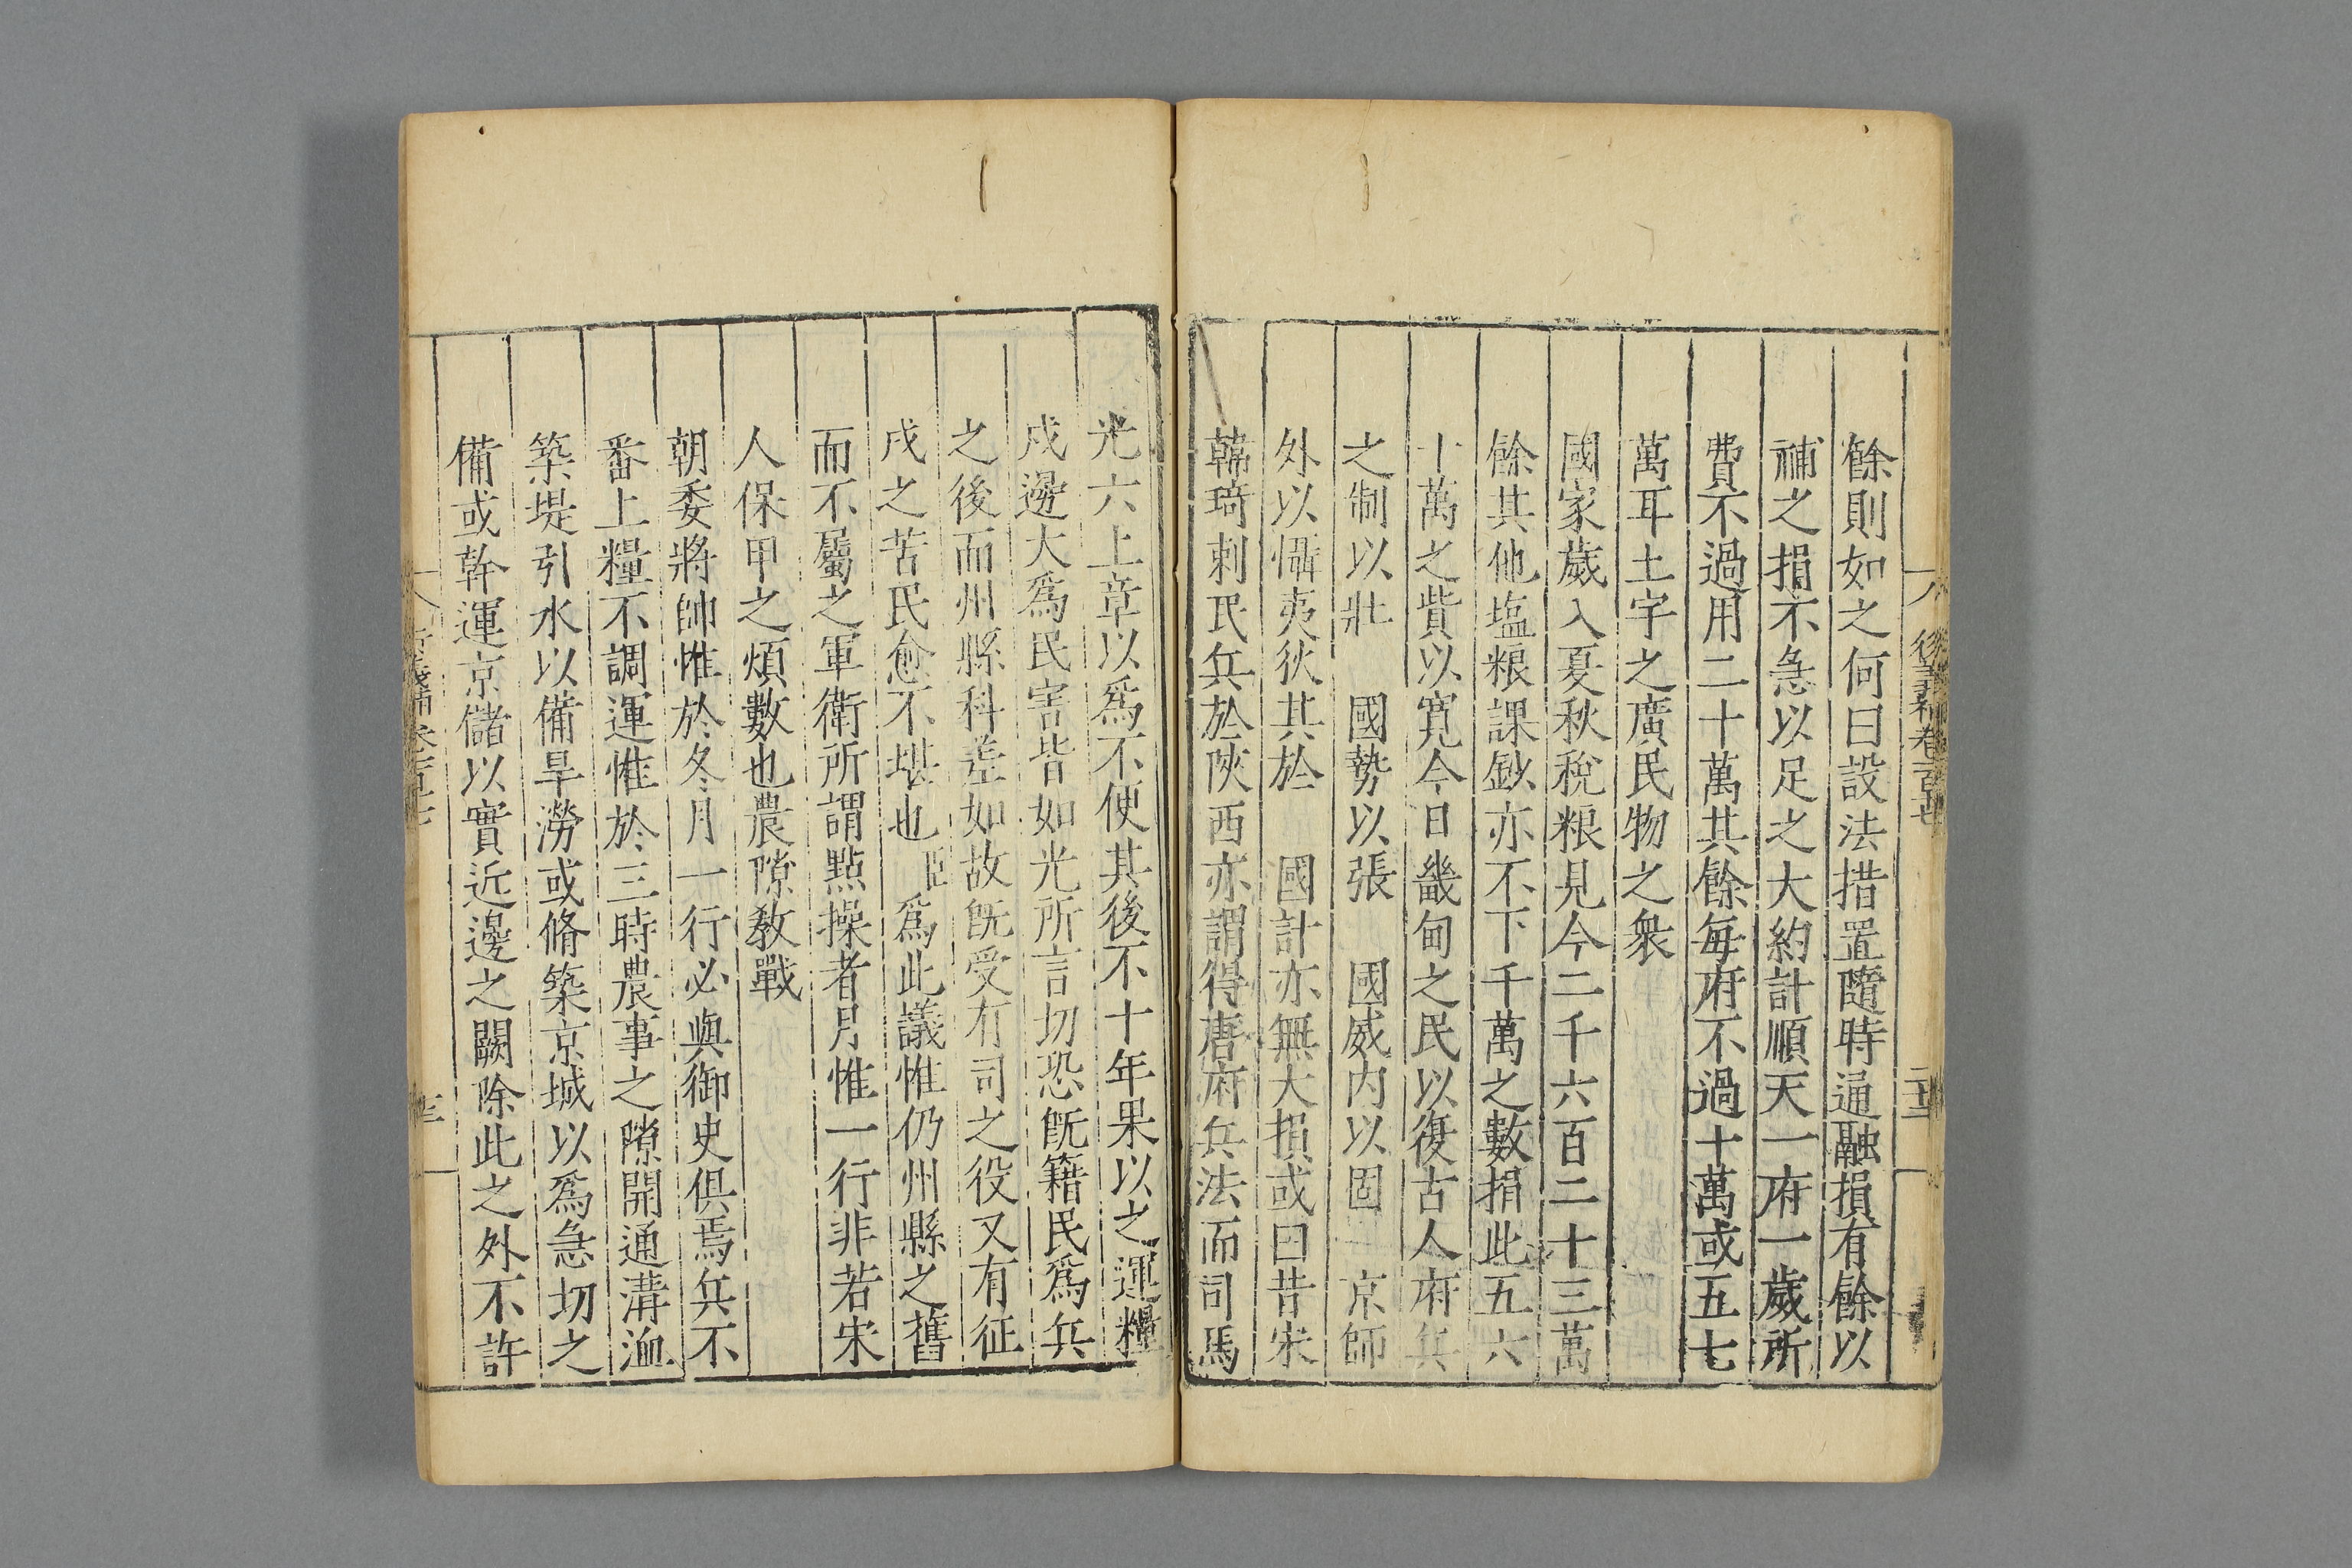 餘則如之何曰設法措置隨時通融損有餘以
補之捐不急以足之大約計順天一府一歲所
費不過用二十萬其餘每府不過十萬或五七
萬耳土宇之廣民物之衆
國家歲入夏秋稅粮見今二千六百二十三萬
餘其他塩粮課鈔亦不下千萬之數捐此五六
十萬之貲以寛今日畿甸之民以復古人府兵
之制以壯 國勢以張 國威内以固 京師
外以懾夷狄其於 國計亦無大損或曰昔宋
韓琦刺民兵於陝西亦謂得唐府兵法而司馬
光六上章以爲不使其後不十年果以之運糧
戍邊大爲民害皆如光所言切恐旣籍民爲兵
之後而州縣科差如故旣受有司之役又有征
戍之苦民愈不堪也臣爲此議惟仍州縣之舊
而不屬之軍衛所謂點操者月惟一行非若宋
人保甲之煩數也農隙敎戰
朝委將帥惟於冬月一行必與御史俱焉兵不
番上糧不調運惟於三時農事之隙開通溝洫
築堤引水以備旱澇或脩築京城以爲急切之
備或幹運京儲以實近邊之闕除此之外不許